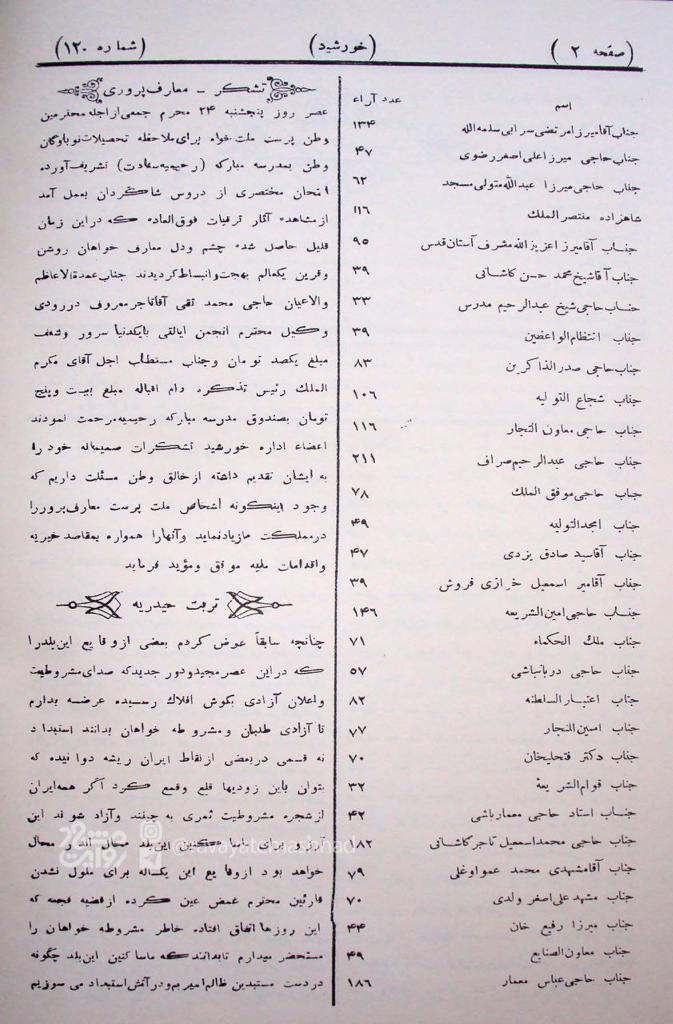 (صفحه ۲)
(خورشید)
(شماره ۱۲۰)
اسم
عدد آراء
جناب آقامیرزا مرتضی سرابی سلمه الله ۱۳۴
جناب حاجی میرزا علی اصغر رضوی ۴۷
جناب حاجی میرزا عبدالله متولی مسجد ۶۲
شاهزاده منتصر الملک ۱۱۶
جناب آقامیرزا عزیزالله مشرف آستان قدس ۹۵
جناب آقاشیخ محمد حسن کاشانی ۳۹
جناب حاجی شیخ عبدالرحیم مدرس ۳۳
جناب انتظام الواعظین ۳۹
جناب حاجی صدرالذاکرین ۸۳
جناب شجاع التولیه ۱۰۶
جناب حاجی معاون التجار ۱۱۶
جناب حاجی عبدالرحیم صراف ۲۱۱
جناب حاجی موفق الملک ۷۸
جناب امجدالتولیه ۴۹
جناب آقاسید صادق یزدی ۴۷
جناب آقامیر اسمعیل خرازی فروش ۳۹
جناب حاجی امین الشریعه ۱۴۶
جناب ملک الحکماء ۷۱
جناب حاجی دربانباشی ۵۷
جناب اعتبار السلطنه ۸۲
جناب امین التجار ۷۷
جناب دکتر فتحلیخان ۷۰
جناب قوام الشریعة ۳۲
جناب استاد حاجی معمارباشی ۴۲
جناب حاجی محمد اسمعیل تاجر کاشانی ۱۸۲
جناب آقامشهدی محمد عمواوغلی ۷۹
جناب مشهد علی اصغر ولدی ۷۰
جناب میرزا رفیع خان ۴۴
جناب معاون الصنایع ۴۹
جناب حاجی عباس معمار ۱۸۶
تشکر - معارف پروری
عصر روز پنجشنبه ۲۴ محرم جمعی از اجله محترمین
وطن پرست ملت خواه برای ملاحظه تحصیلات نوباوگان
وطن بمدرسه مبارکه (رحیمیه سعادت) تشریف آورده
امتحان مختصری از دروس شاگردان بعمل آمد
از مشاهده آثار ترقیات فوق العاده که در این زمان
قلیل حاصل شده چشم و دل معارف خواهان روشن
و قرین یکعالم بهجت و انبساط گردیدند جناب عمدة الاعاظم
والاعیان حاجی محمد تقی آقا تاجر معروف دررودی
وکیل محترم انجمن ایالتی بایکدنیا سرور و شعف
مبلغ یکصد تومان و جناب مستطاب اجل آقای مکرم
الملک رئیس تذکره دام اقباله مبلغ بیست و پنج
تومان بصندوق مدرسه مبارکه رحیمیه مرحمت نمودند
اعضاء اداره خورشید تشکرات صمیمانه خود را
به ایشان تقدیم داشته از خالق وطن مسئلت داریم که
وجود اینگونه اشخاص ملت پرست معارف پرور را
در مملکت ما زیاد نماید و آنها را همواره بمقاصد خیریه
و اقدامات ملیه موفق و مؤید فرماید
تربت حیدریه
چنانچه سابقاً عرض کردم بعضی از وقایع این بلد را
که در این عصر مجید و دور جدید که صدای مشروطیت
و اعلان آزادی بگوش افلاک رسیده عرضه بدارم
تا آزادی طلبان و مشروطه خواهان بدانند استبداد
نه قسمی در بعضی از نقاط ایران ریشه دوانیده که
بتوان باین زودیها قلع و قمع کرد اگر همه ایران
از شجره مشروطیت ثمری به چینند و آزاد شوند این
آرزو برای ماساکنین این بلد محال و محال
خواهد بود از وقایع این یکساله برای ملول نشدن
قارئین محترم غمض عین کرده از قضیه فجیعه که
این روزها اتفاق افتاده خاطر مشروطه خواهان را
مستحضر میدارم تا بدانند که ماساکنین این بلد چگونه
در دست مستبدین ظالم اسیریم و در آتش استبداد می سوزیم
روایت مشهد
@ravayatemashhad